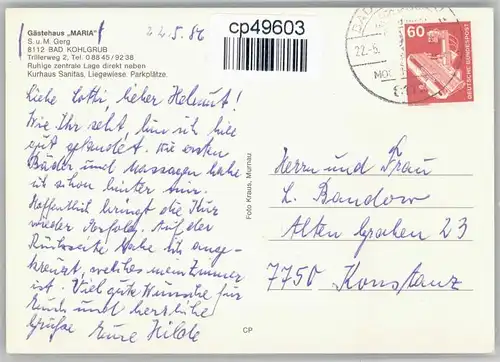 Gästehaus „MARIA"
S. u. M. Gerg
8112 BAD KOHLGRUB
Trillerweg 2, Tel. 08845/9238
Ruhige zentrale Lage direkt neben
Kurhaus Sanitas, Liegewiese. Parkplätze.
22.5.86
cp49603
BAD
22.-5.
MOO
60
DEUTSCHE BUNDESPOST
Liebe Lotti, lieber Helmut!
Wie Ihr seht, bin ich hier
gut gelandet. Die ersten
Bäder und Massagen habe
ich schon hinter mir.
Hoffentlich bringt die Kur
wieder Erfolg. Auf der
Rückseite habe ich ange-
kreuzt, welches mein Zimmer
ist. Viel gute Wünsche für
Euch und herzliche
Grüße Eure Hilde
Foto Kraus, Murnau
CP
Herrn und Frau
L. Bandow
Alten Graben 23
7750 Konstanz